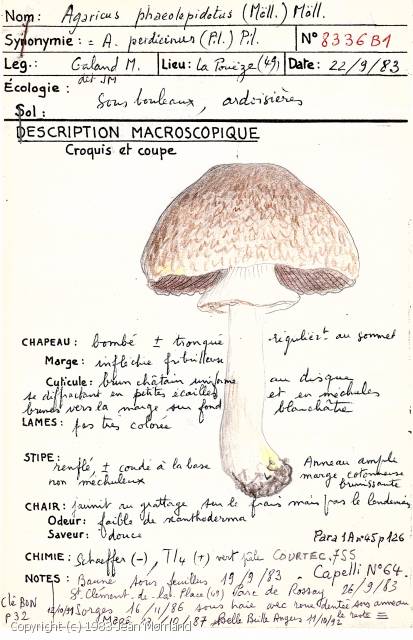 Nom: Agaricus phaeolepidotus (Möll.) Möll.
Synonymie: = A. perdicinus (Pil.) Pil. N° 8336B1
Leg.: Galand M. Lieu: La Pouëze (49) Date: 22/9/83
det JM
Écologie: Sous bouleaux, ardoisières
Sol:
DESCRIPTION MACROSCOPIQUE
Croquis et coupe
CHAPEAU: bombé ± tronqué régulièrt au sommet
Marge: infléchie fibrilleuse
Cuticule: brun châtain uniforme au disque
se diffractant en petites écailles et en méchules
brunes vers la marge sur fond blanchâtre
LAMES: pas très colorée
STIPE: renflé, ± coudé à la base Anneau ample
non méchuleux marge cotonneuse
brunissante
CHAIR: jaunit au grattage sur le frais mais pas le lendemain
Odeur: faible de xanthoderma
Saveur: douce Para 1A n°45 p126
CHIMIE: Schaeffer (-), Tl4 (+) vert pâle COURTEC. 755
NOTES: Bauné sous feuillus 19/9/83 - Capelli N°64 -
St. Clément de la Place (49) Parc de Rossay 26/9/83
Clé BON
P32
12/10/91 Sorges 16/11/86 sous haie avec roue dentée sous anneau
13/10/87 Belle Beille Angers 11/10/92 le reste =
Copyright (c) 1983 Jean Mornand